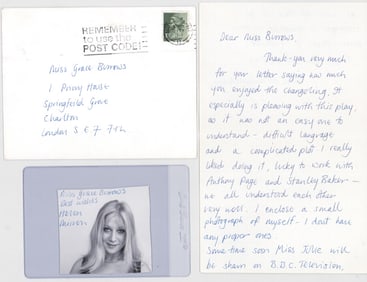 REMEMBER
to use the
POST CODE!
Miss Grace Burrows
1 Priory
Springfield Grove
Charlton
London S E 7 7
Miss Grace Burrows
Best wishes
Helen
Mirren
Dear Miss Burrows,
Thank-you very much
for your letter saying how much
you enjoyed the changeling. It
especially is pleasing with this play,
as it was not an easy one to
understand - difficult language
and a complicated plot. I really
liked doing it, lucky to work with
Anthony Page and Stanley Baker -
we all understood each other
very well. I enclose a small
photograph of myself - I don't have
any proper ones
Some time soon Miss Julie will
be shown on B.B.C. Television,